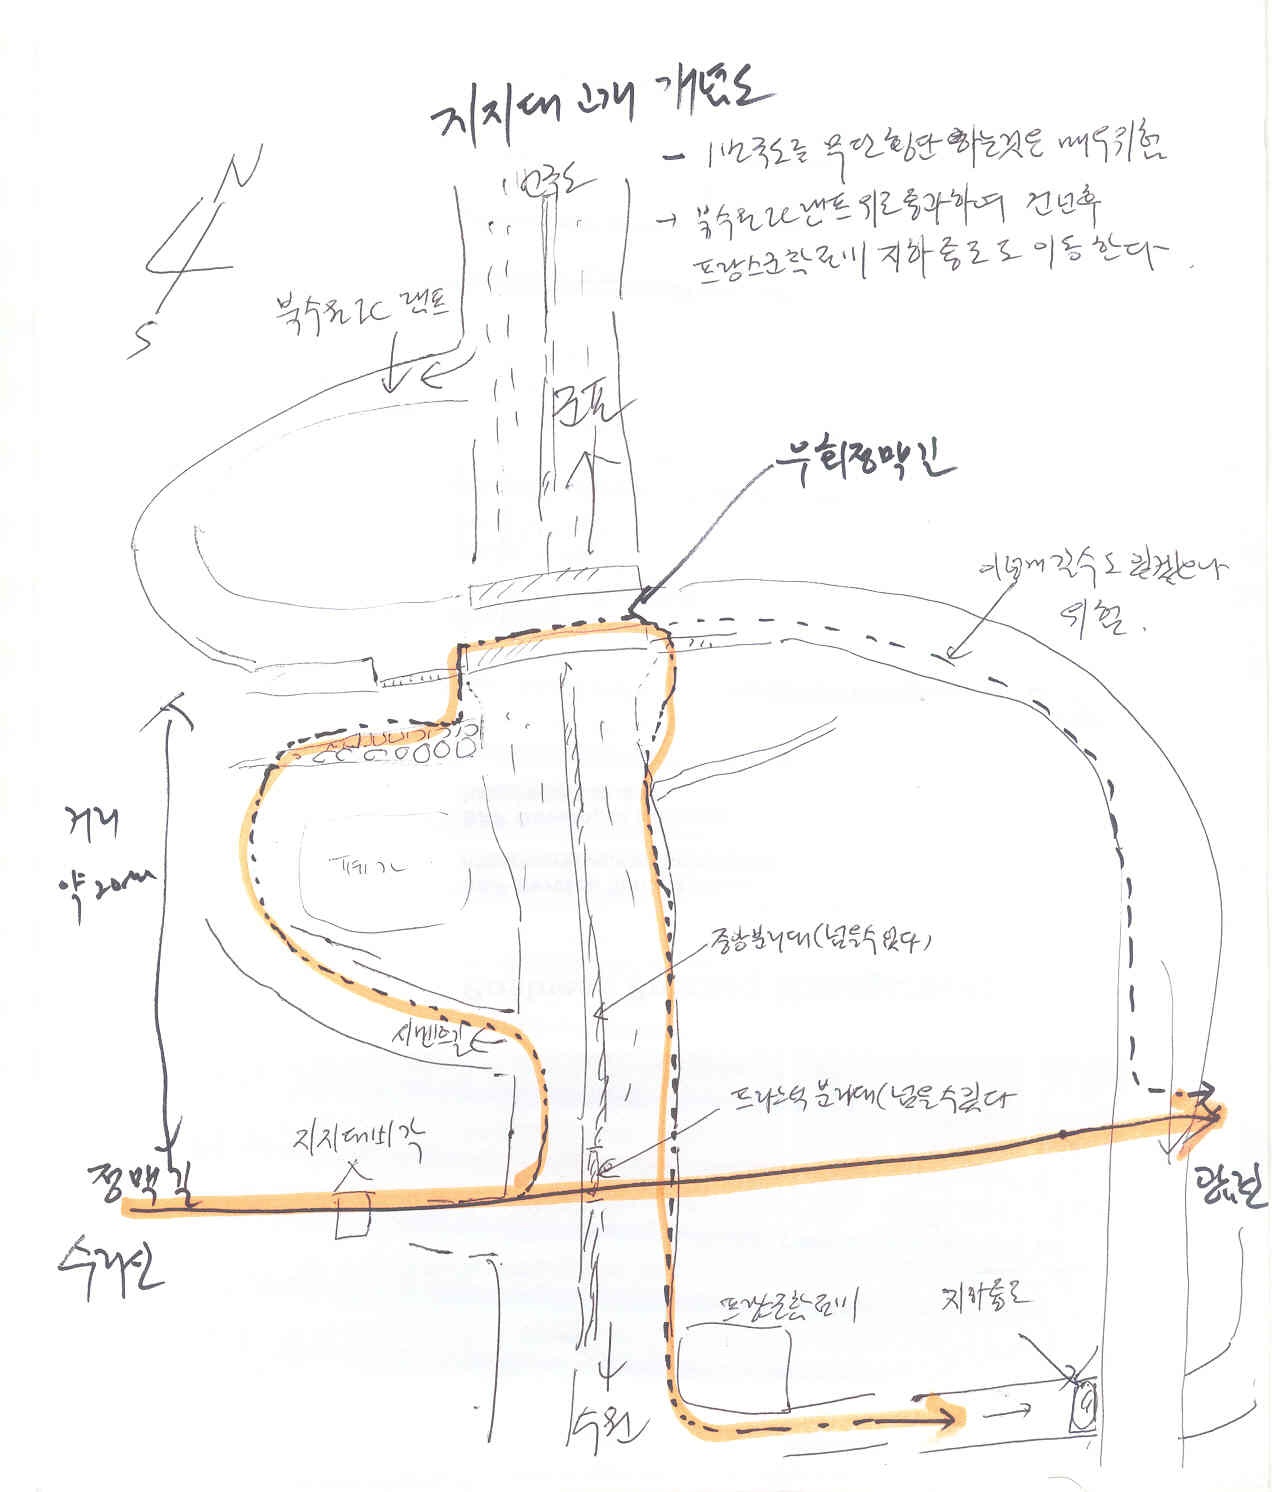 지지대고개 개념도
- 1번국도를 무단횡단 하는것은 매우위험
→ 북수원IC 랜프위로통과하여 건넌후
프랑스군참전비 지하통로로 이동한다.
1번국도
N
S
북수원IC 랜프
군포
우회정맥길
이렇게 갈수도 있겠으나
위험.
거리
약 20m
폐가
중앙분리대(넘을수없다)
시멘트길
프라스틱 분리대(넘을수있다
지지대비각
정맥길
광교산
수리산
프랑스군참전비
지하통로
수원